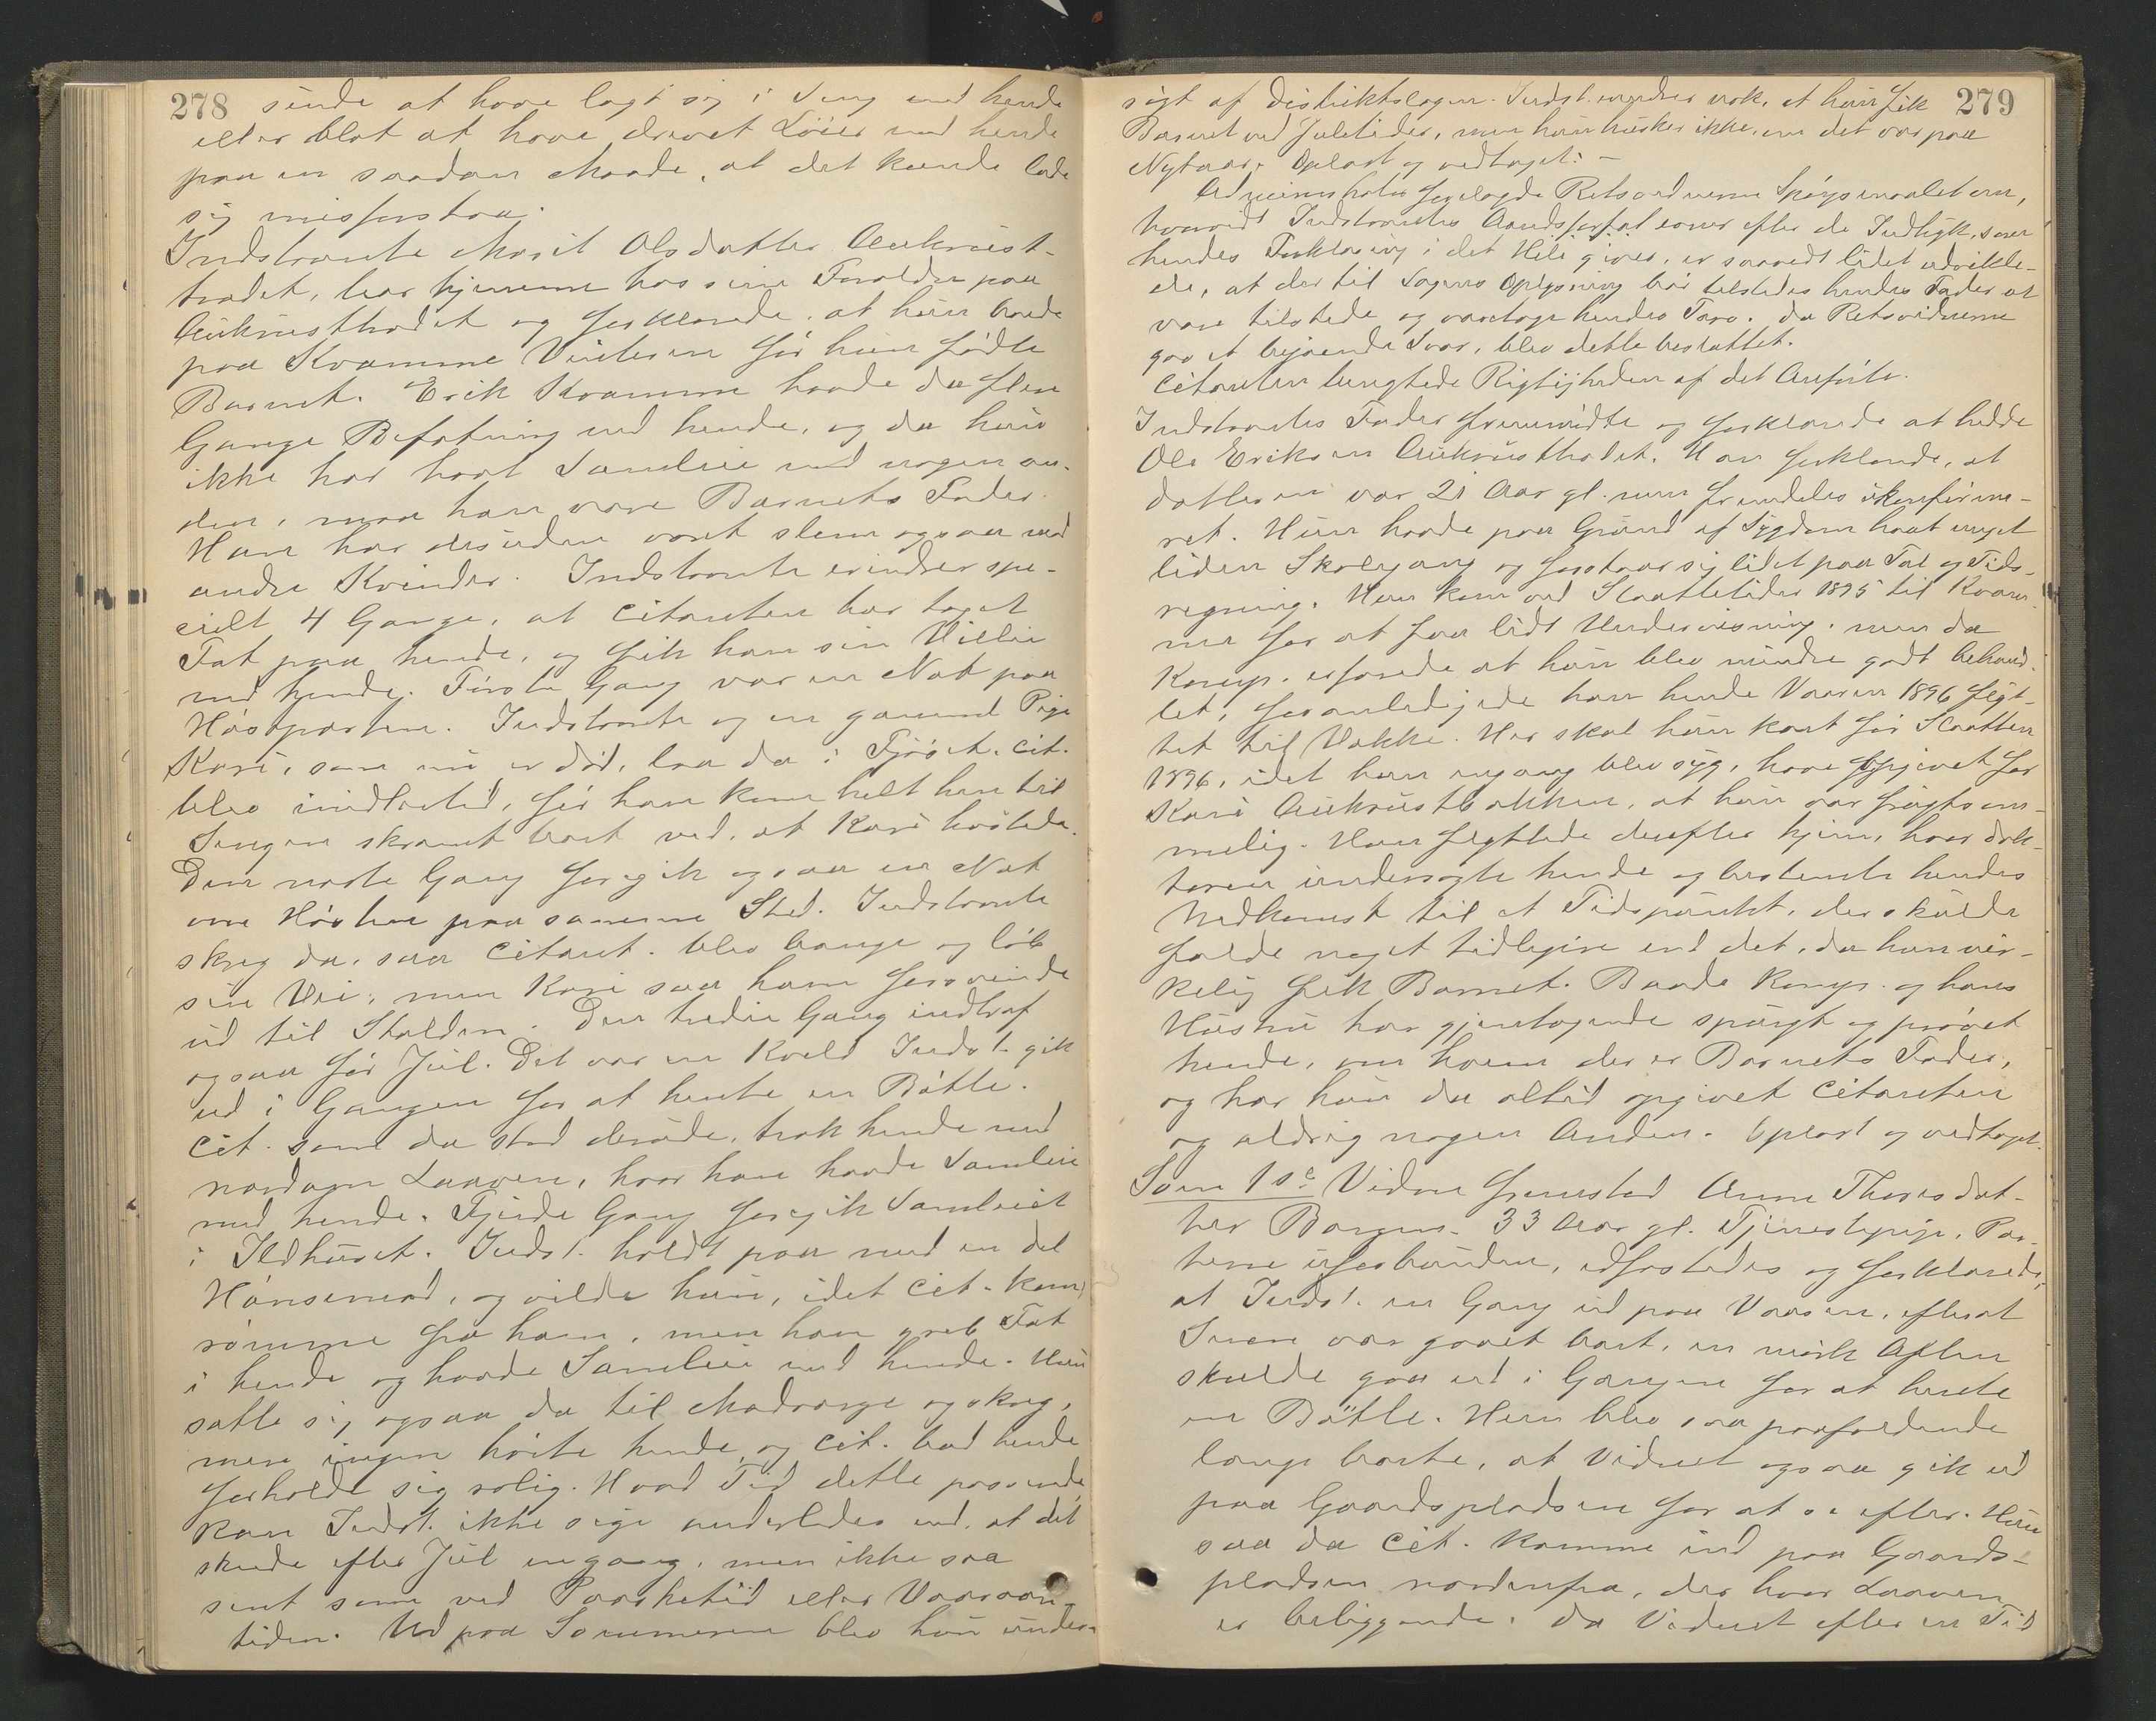 278
sinde at have lagt sig i Seng med hende
eller blot at have drevet Löier med hende
paa en saadan Maade, at det kunde lade
sig misforstaa.
Indstevnte Marit Olsdatter Aukrust-
trædet, bor hjemme hos sine Forældre paa
Aukrusttrædet og forklarede, at hun boede
paa Kvamme Vinteren för hun födte
Barnet. Erik Kvamme havde da flere
Gange Befatning med hende, og da hun
ikke har havt Samleie med nogen an-
den, maa han være Barnets Fader.
Han har desuden været slem ogsaa med
andre Kvinder. Indstevnte erindrer spe-
cielt 4 Gange, at Citanten har taget
Fat paa hende, og fik han sin Villie
med hende. Förste Gang var en Nat paa
Höstparten. Indstevnte og en gammel Pige
Kari, som nu er död, laa da i Fjöset. Cit.
blev imidlertid, för han kom helt hen til
Sengen skræmt bort ved, at Kari hostede.
Den næste Gang foregik ogsaa en Nat
om Hösten paa samme Sted. Indstevnte
skreg da, saa Citant. blev bange og löb
sin Vei, men Kari saa ham forsvinde
ud til Stalden. Den tredie Gang indtraf
ogsaa för Jul. Det var en Kveld Indst. gik
ud i Gangen for at hente en Bötte.
Cit. som da stod derude, trak hende med
nordom Laaven, hvor han havde Samleie
med hende. Fjerde Gang foregik Samleiet
i Ildhuset. Indst. holdt paa med en del
Hönsemad, og vilde hun, idet Cit. kom,
römme fra ham, men han greb Fat
i hende og havde Samleie med hende. Hun
satte sig ogsaa da til Modværge og skreg,
men ingen hörte hende, og Cit. bad hende
forholde sig rolig. Hvad Tid dette passerede,
kan Indst. ikke sige anderledes end, at det
skede efter Jul engang, men ikke saa
sent som ved Paasketid eller Vaaraan-
tiden. Ud paa Sommeren blev hun under-
279
sögt af Distriktslægen. Indst. erindrer nok, at hun fik
Barnet ved Juletider, men hun husker ikke, om det var paa
Nytaar. Oplæst og vedtaget. -
Administrator forelagde Retsvidnerne Spörgsmaalet om,
hvorvidt Indstevntes Aandsforhold efter de Indtryk, som
hendes Forklaring i det Hele giver, er saavidt lidet udvikle-
de, at der til Sagens Oplysning bör tilstedes hendes Fader at
være tilstede og varetage hendes Tarv. Da Retsvidnerne
gav et bejaende Svar, blev dette besluttet.
Citanten benegtede Rigtigheden af det Anförte.
Indstevntes Fader fremmödte og forklarede at hedde
Ole Eriksen Aukrusttrædet. Han forklarede, at
Datteren var 21 Aar gl. men fremdeles ukonfirme-
ret. Hun havde paa Grund af Sygdom havt meget
liden Skolegang og forstaar sig lidet paa Tal og Tids-
regning. Hun kom ved Slaattetider 1895 til Kvam-
me for at faa lidt Undervisning, men da
Komp. erfarede at hun blev mindre godt behand-
let, foranledigede han hende Vaaren 1896 flyt-
tet til Bakke. Her skal hun kort för Slaatten
1896, idet hun engang blev syg, have opgivet for
Kari Aukrustbakken, at hun var frugtsom-
melig. Hun flyttede derefter hjem, hvor Dok-
toren undersögte hende og bestemte hendes
Nedkomst til et Tidspunkt, der skulde
falde noget tidligere end det, da hun vir-
kelig fik Barnet. Baade Komp. og hans
Hustru har gjentagende spurgt og prövet
hende, om hvem der er Barnets Fader,
og har hun da altid opgivet Citanten
og aldrig nogen Anden. Oplæst og vedtaget.
Som 1ste Vidne fremstod Anne Thoresdat-
ter 33 Aar gl. Tjenestepige, Par-
terne uforbunden, edfæstedes og forklarede,
at Indst. en Gang ud paa Vaaren, efterat
Sneen var gaaet bort, en mörk Aften
skulde gaa ud i Gangen for at hente
en Bötte. Hun blev saa paafaldende
længe borte, at Vidnet ogsaa gik ud
paa Gaardspladsen for at se efter. Hun
saa da Cit. komme ind paa Gaards-
pladsen nordenfra, der hvor Laaven
er beliggende. Da Vidnet efter en Tid